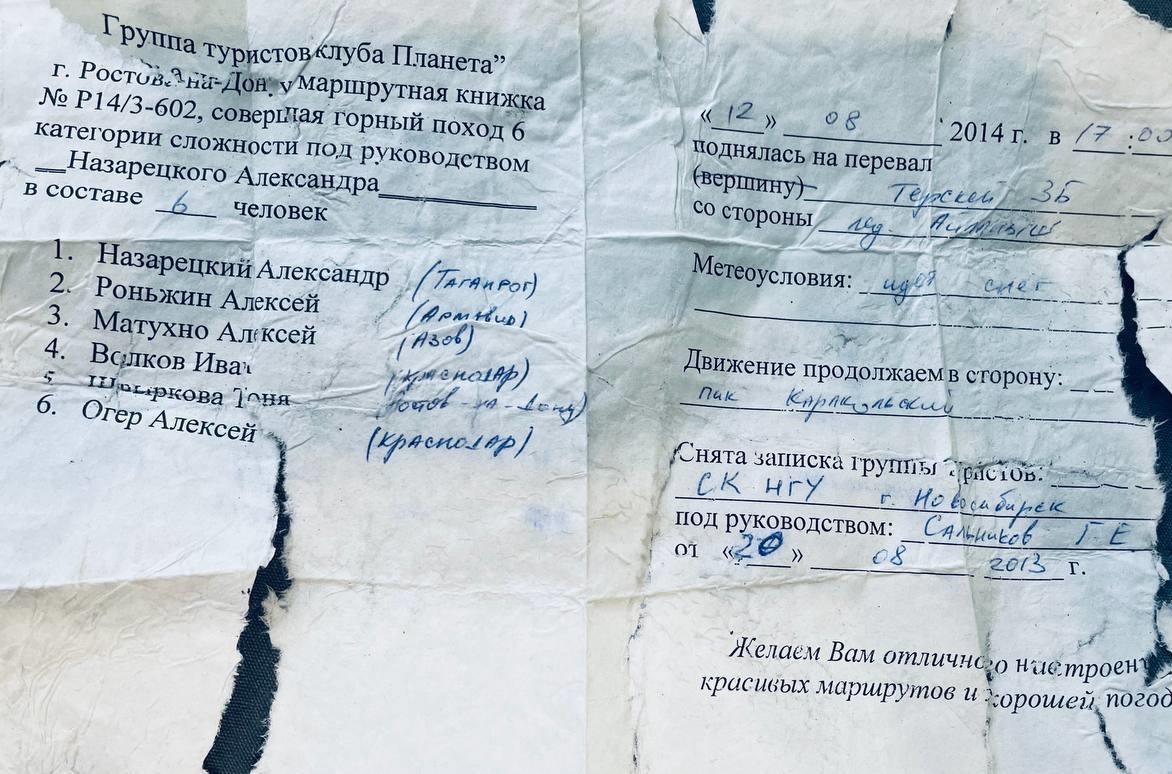 Группа туристов клуба Планета”
г. Ростова-на-Дону маршрутная книжка
№ Р14/3-602, совершая горный поход 6
категории сложности под руководством
__Назарецкого Александра____________
в составе 6 человек
1. Назарецкий Александр (Таганрог)
2. Роньжин Алексей (Армавир)
3. Матухно Алексей (Азов)
4. Волков Иван (Краснодар)
5. Тоня (Ростов-на-Дону)
6. Огер Алексей (Краснодар)
«12» 08 2014 г. в 17:00
поднялась на перевал
(вершину) Терскей 3Б
со стороны лед. Айланыш
Метеоусловия: идёт снег
Движение продолжаем в сторону:
пик Каракольский
Снята записка группы туристов:
СК НГУ г. Новосибирск
под руководством: Сальников Г Е
от «20» 08 2013 г.
Желаем Вам отличного настроен
красивых маршрутов и хорошей погод